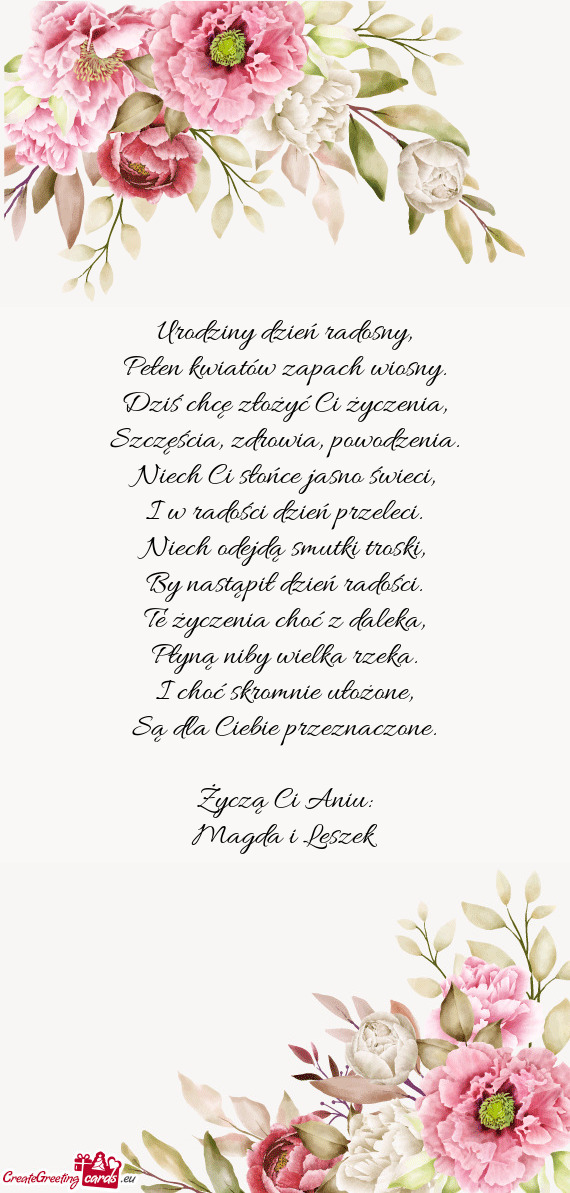 Urodziny dzień radosny,
Pełen kwiatów zapach wiosny.
Dziś chcę złożyć Ci życzenia,
Szczęścia, zdrowia, powodzenia.
Niech Ci słońce jasno świeci,
I w radości dzień przeleci.
Niech odejdą smutki troski,
By nastąpił dzień radości.
Te życzenia choć z daleka,
Płyną niby wielka rzeka.
I choć skromnie ułożone,
Są dla Ciebie przeznaczone.
Życzą Ci Aniu:
Magda i Leszek
CreateGreeting cards .eu